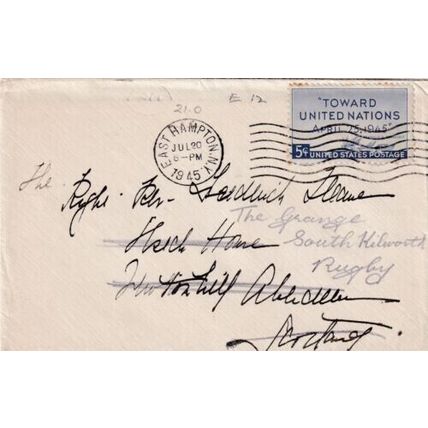 21.0 E 12
"TOWARD
UNITED NATIONS
APRIL 25, 1945"
5¢ UNITED STATES POSTAGE
EAST HAMPTON, N.Y.
JUL 20
6-PM
1945
The
Right Rev.
The Grange
South Kilworth
Rugby
Newtonhill Aberdeen
Scotland